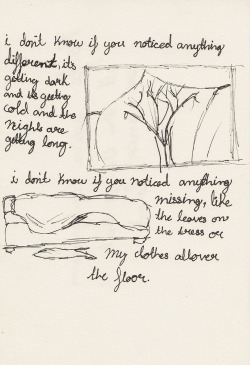 i don't know if you noticed anything
different, it's
getting dark
and it's getting
cold and the
nights are
getting long.
i don't know if you noticed anything
missing, like
the leaves on
the tress or
my clothes allover
the floor.